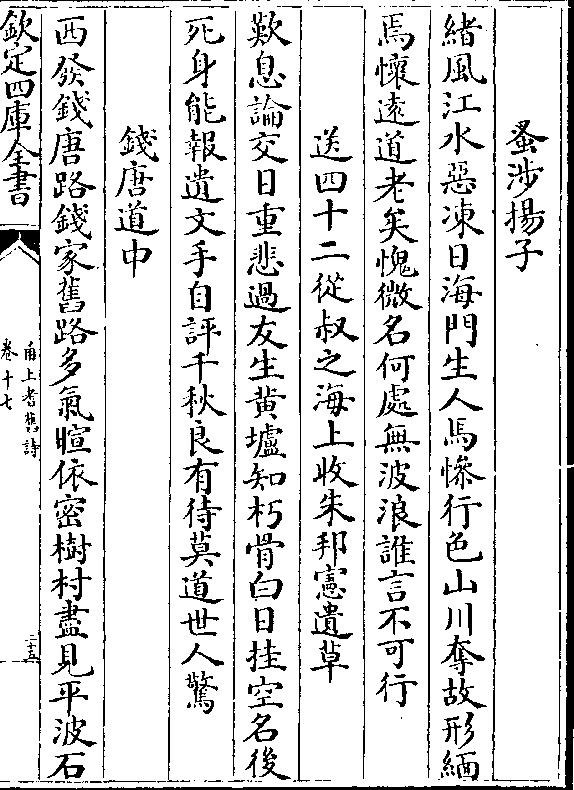 蚤涉揚子
緒風江水惡凍日海門生人馬慘行色山川奪故形緬
焉懷遠道老矣愧微名何處無波浪誰言不可行
送四十二從叔之海上收朱邦憲遺草
歎息論交日重悲過友生黄壚知朽骨白日挂空名後
死身能報遺文手自評千秋良有待莫道世人驚
錢唐道中
西發錢唐路錢家舊路多氣暄依密樹村盡見平波石
欽定四庫全書
甬上耆舊詩
卷十七
三五